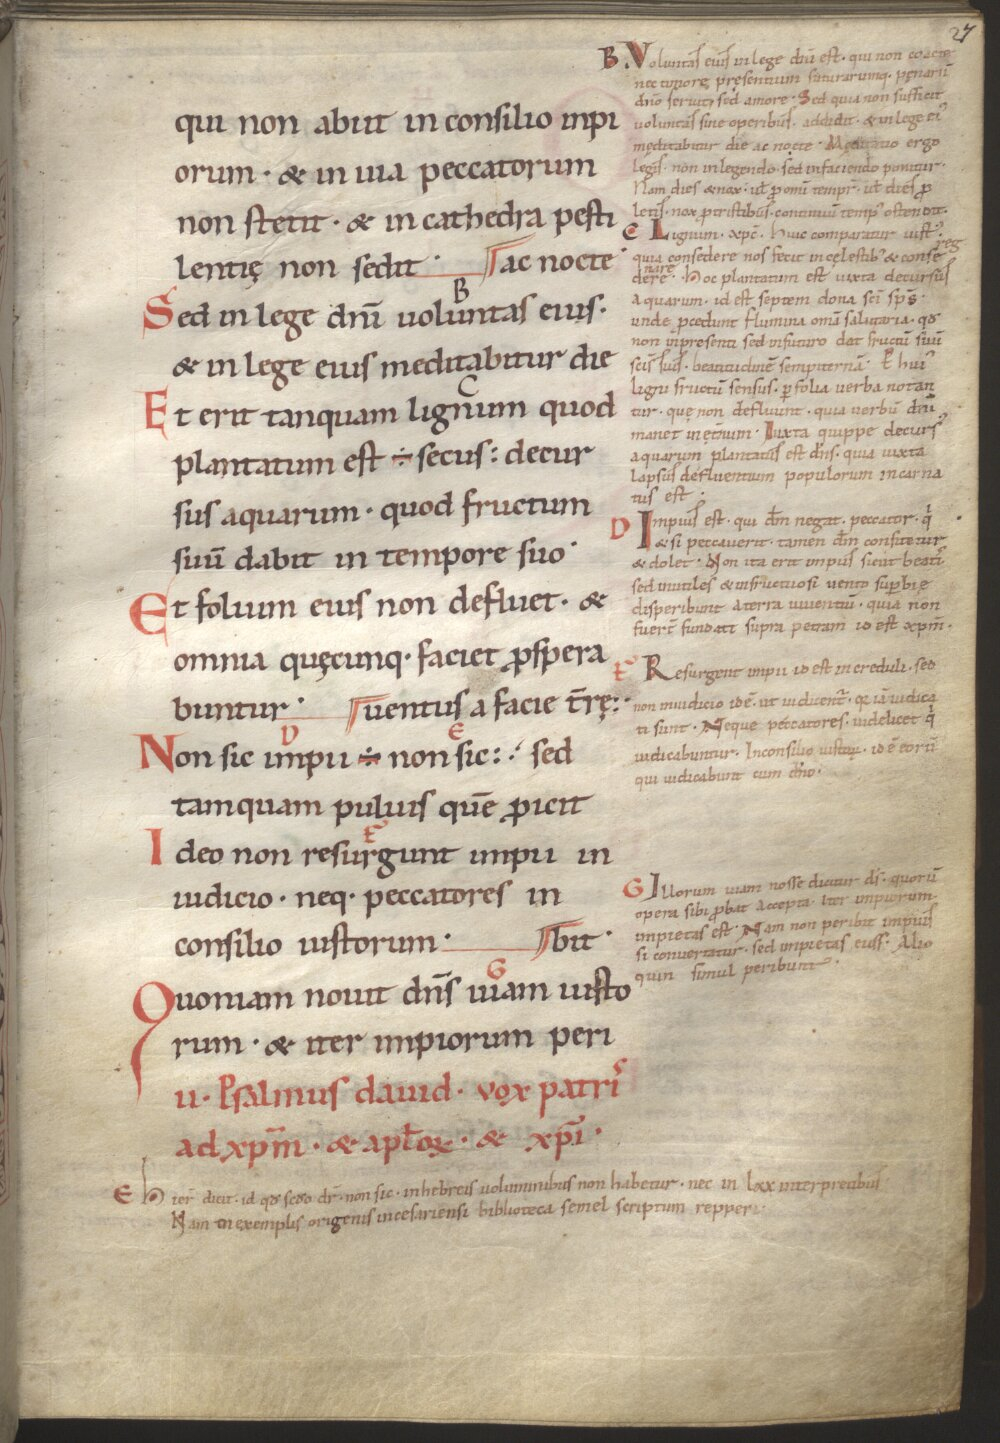 27
qui non abiit in consilio inpi
orum · & in uia peccatorum
non stetit · & in cathedra pesti
lentię non sedit · ac nocte ·
B
Sed in lege dn̄i uoluntas eius ·
& in lege eius meditabitur die
C
Et erit tanquam lignum quod
plantatum est ÷ secus : decur
sus aquarum · quod fructum
suū dabit in tempore suo ·
Et folium eius non defluet · &
omnia quęcunq· faciet ꝓspera
buntur · uentus a facie t̄rę :·
D E
Non sic impii ÷ non sic : · sed
tamquam puluis quē ꝓicit
F
Ideo non resurgunt impii in
iudicio · neq· peccatores in
consilio iustorum · bit ·
G
Quoniam nouit dn̄s uiam iusto
rum · & iter impiorum peri
ii · Psalmus dauid · vox patris
ad xp̄m · & apl̄oꝝ · & xp̄i ·
B. Voluntas eius in lege dn̄i est · qui non coacte
nec timore presentium futurarumq· penarū
dn̄o seruit, sed amore · Sed quia non sufficit
uoluntas sine operibus · addidit · & in lege ei'
meditabitur die ac nocte · Meditatio ergo
legis · non in legendo · sed in faciendo ponitur ·
Nam dies & nox · ut ꝓ omni tempr̄ · ut dies ꝓ
letis · nox ꝓ tristibus · continuū temp' ostendit ·
C Lignum · xp̄c · huic comparatur iust' ·
quia consedere nos fecit in cęlestib' & conre
dere · hoc plantatum est iuxta decursus
aquarum · id est septem dona sc̄i sp̄s ·
unde ꝓcedunt flumina omā salutaria · qd̄
non in presenti sed in futuro dat fructū suū
sc̄is suis · beatitudinē sempiternā · Et hui'
ligni fructū sensus · ꝑ folia uerba notan
tur · quę non defluunt · quia uerbū dn̄i
manet in ęt̄num · Iuxta quippe decurs'
aquarum plantatus est dn̄s · quia iuxta
lapsus defluentium populorum incarna
tus est ·
D Impius est · qui dm̄ negat · peccator · q'
& si peccauerit · tamen dm̄ confitetur
& dolet · Non ita erit impius sicut beat'
sed inutiles & infructuosi uento suꝑbię
disperibunt a terra uiuentiū · quia non
fuerr̄ fundati supra petram id est xp̄m ·
F Resurgent impii id est increduli · sed
non in iudicio id ē · ut iudicent̄ · q̄ iā iudica
ti sunt · Neque peccatores · uidelicet q'
iudicabuntur · In consilio iustoꝝ · id ē eorū
qui iudicabunt cum dn̄o ·
G Illorum uiam nosse dicitur ds̄ · quorū
opera sibi ꝓbat accepta · Iter impiorum ·
impietas est · Nam non peribit impius
si conuertatur · sed impietas eius · Alio
quin simul peribunt ·
E hier̄ dicit · id qd̄ scd̄o dr̄ · non sic · in hebreis uoluminibus non habetur · nec in lxx interpretibus
Nam in exemplis origenis in cesariensi biblioteca semel scriptum repperi ·